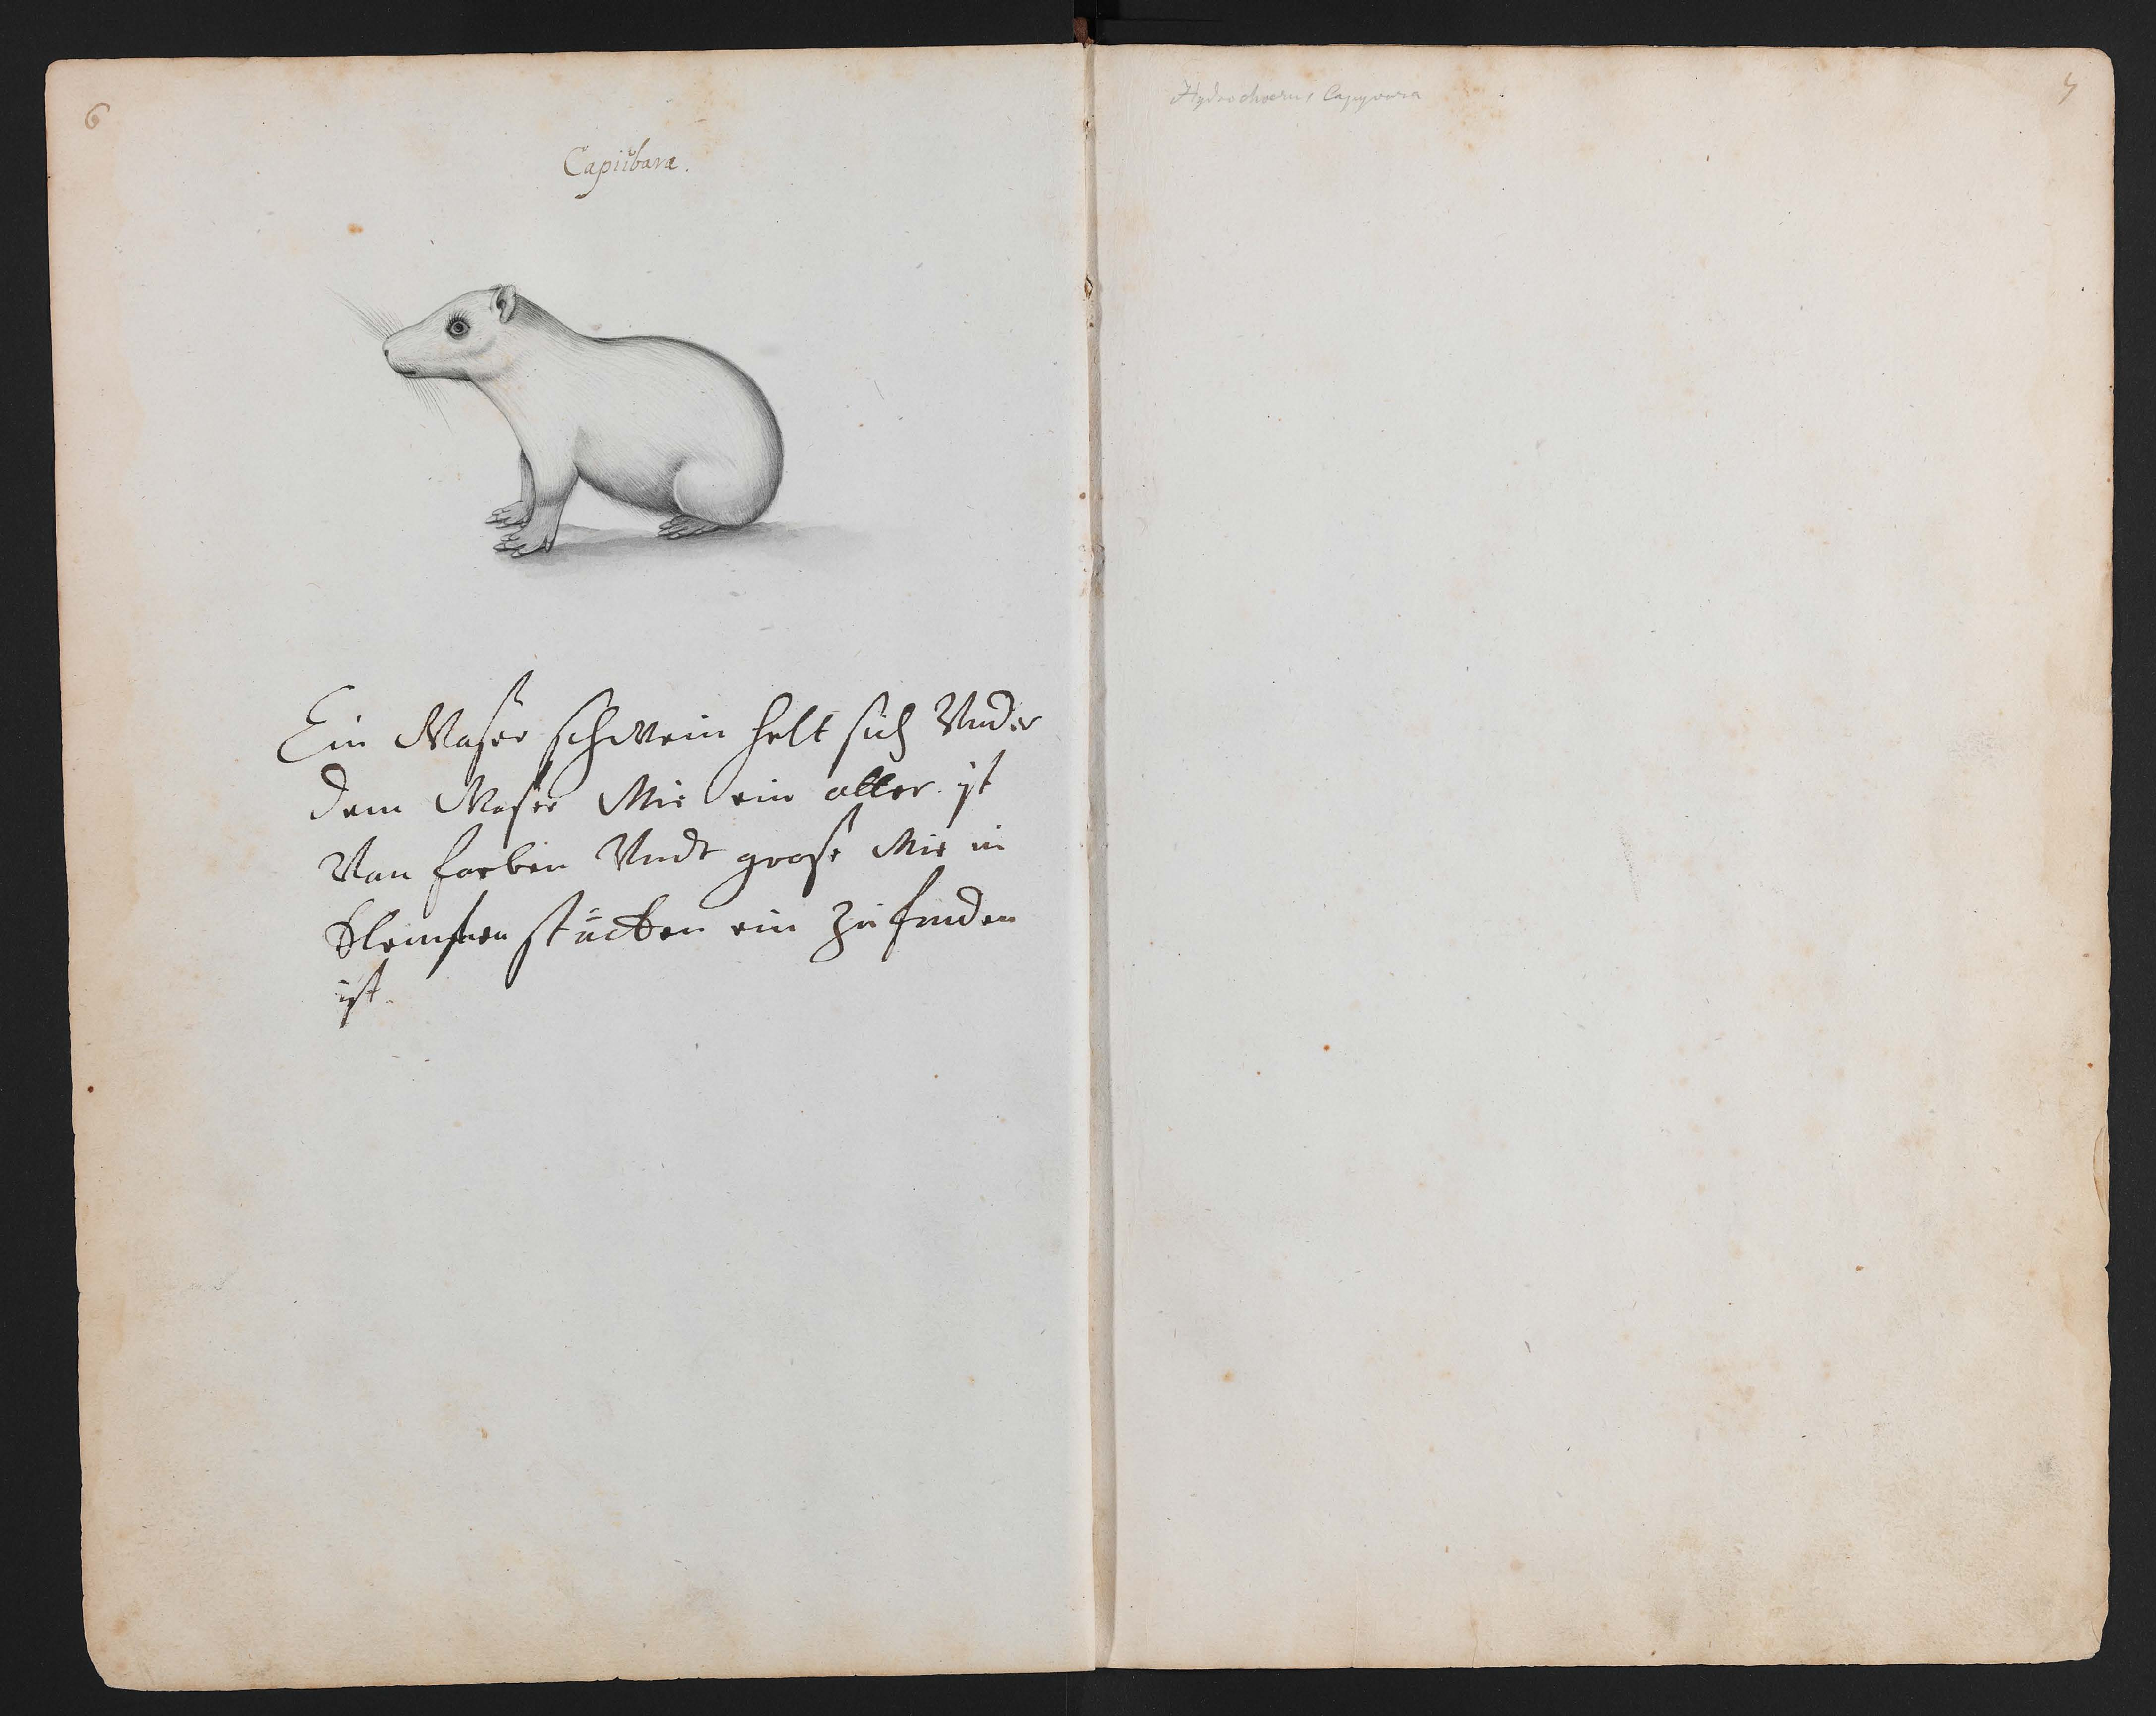 6
Capiibara.
Ein Waßer schwein helt sich Under
dem Waßer Wie ein aller ist
Von farben Undt große Wie in
stücken ein zu finden
ist.
Hydrochoerus Capyvara
7